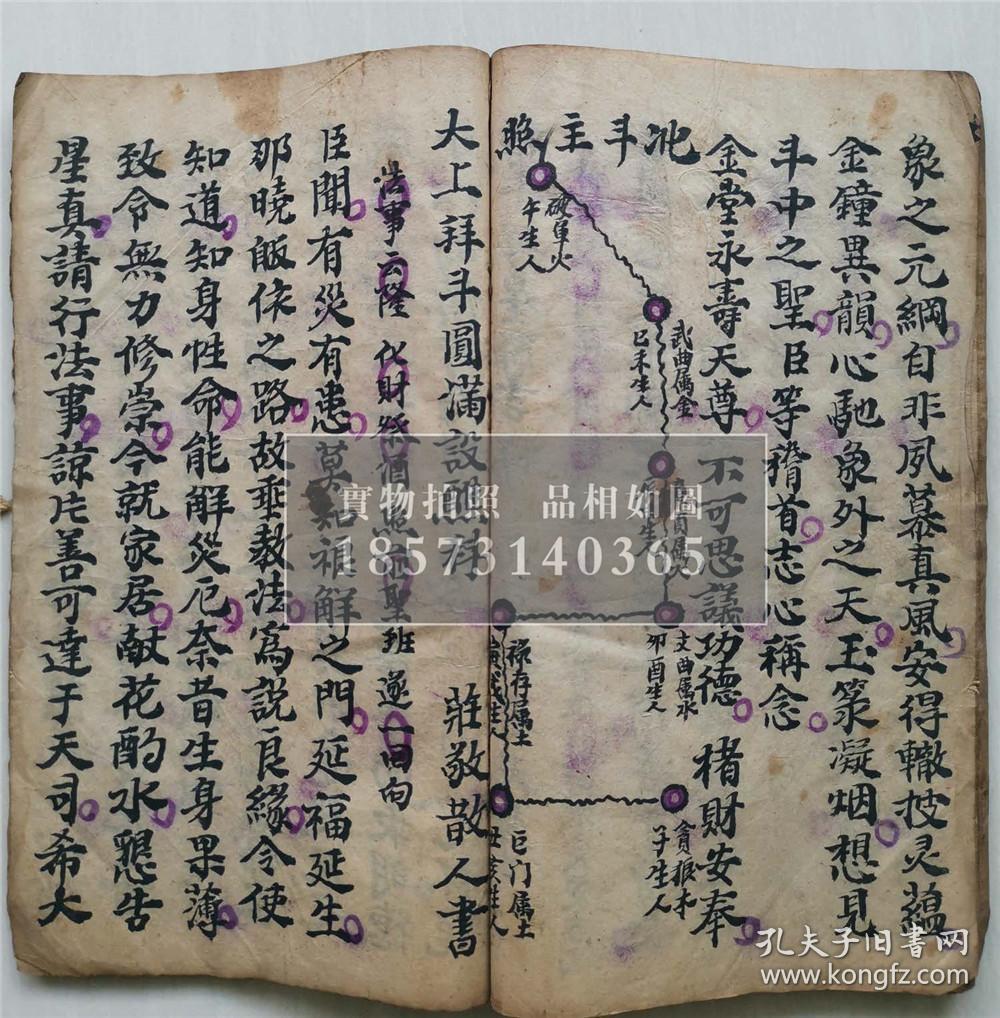 象之元綱自非夙慕真風安得轍披灵蘊
金鐘異韻心馳象外之天玉篆凝烟想見
斗中之聖臣等稽首志心稱念
金堂永壽天尊 不可思議功德 楮財安奉
北斗主照
破軍火
午生人
武曲属金
巳未生人
文曲属水
卯酉生人
禄存属土
寅戌生人
巨门属土
丑亥生人
貪狼木
子生人
大上拜斗圓滿設醮 莊敬散人書
浩事云隆 化財 聖班 遂一回向
臣聞有災有患莫知祖解之門延福延生
那曉皈依之路故垂教法寫説良緣令使
知道知身性命能解災厄奈昔生身果薄
致令無力修崇今就家居献花酌水懇告
星真請行法事諒片善可達于天司希大
實物拍照 品相如圖
18573140365
孔夫子旧書网
www.kongfz.com